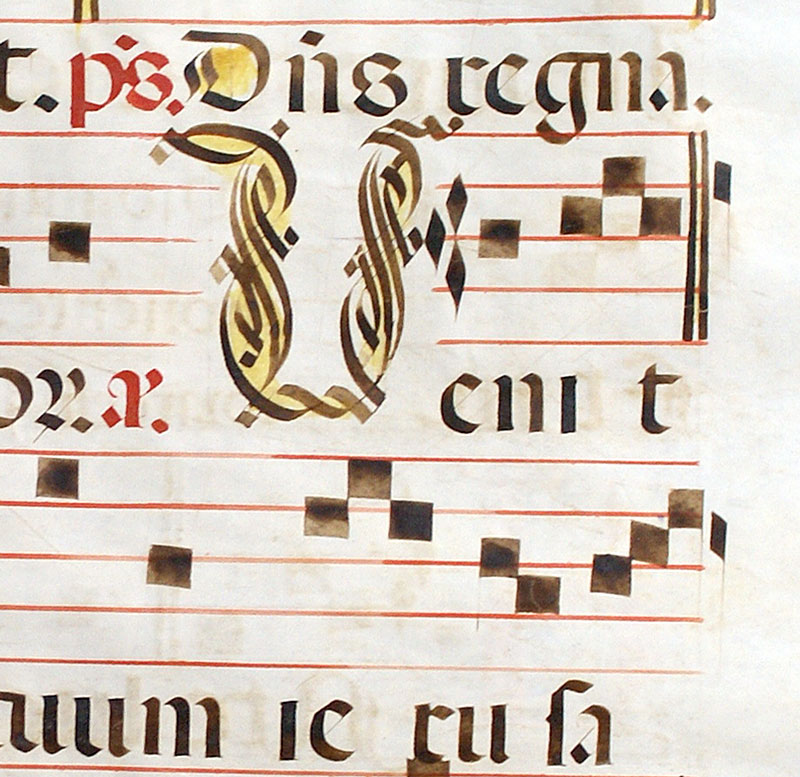 t. ps. Dns regna.
or. a. Veni t
auum ie ru sa